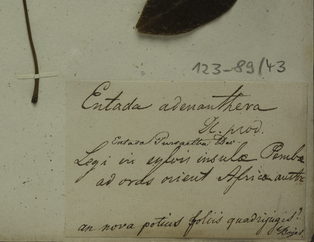 123-89/43
Entada adenanthera
prod.
Entada Pursaetha
Legi in sylvis insulæ Pembæ
ad orient Africæ
an nova potius foliis quadrijugis?
Bojer